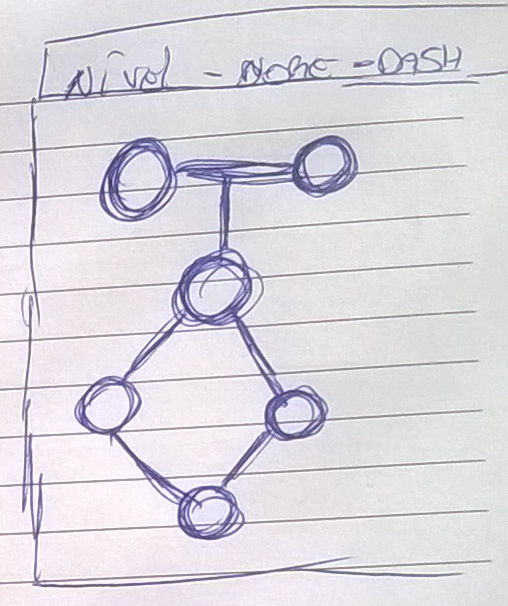 Nível - Nome - DASH